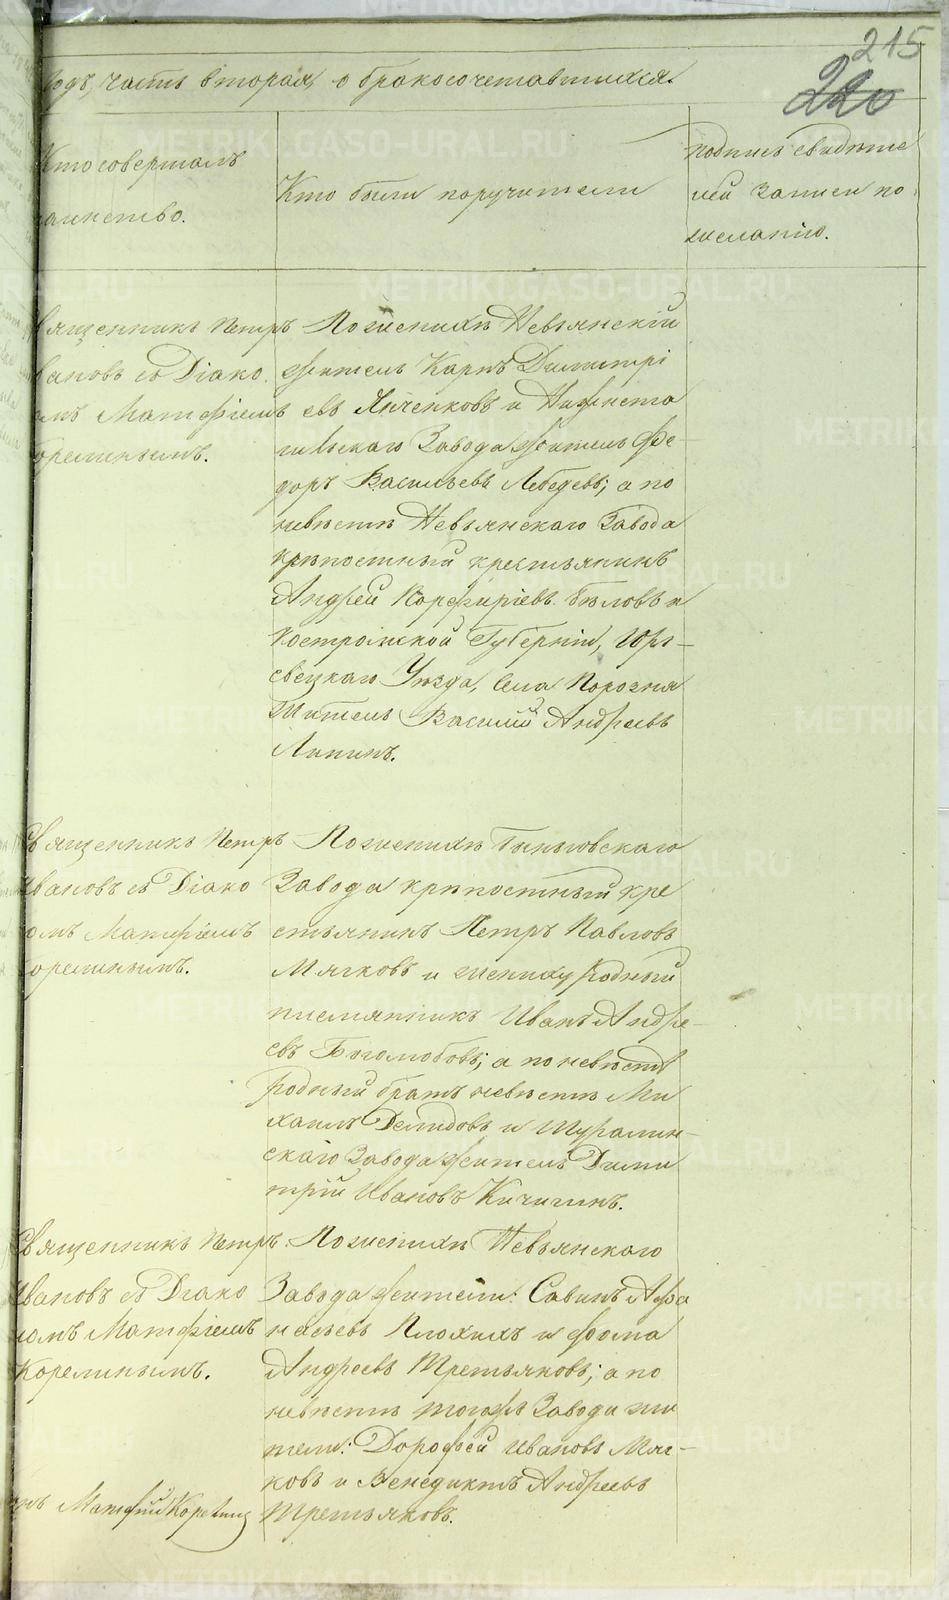 215
220
годъ, часть вторая, о бракосочетавшихся.
Кто совершалъ
таинство.
Кто были поручители
подпись свидѣте
лей записи по
желанію.
Священникъ Петръ
Ивановъ съ Діако
омъ Матфіемъ
Корелинымъ.
По женихѣ Невьянскій
житель Карпъ Димитрі
евъ Янченковъ и Нижнета
гильскаго Завода житель Фе-
доръ Васильевъ Лебедевъ; а по
невѣстѣ Невьянскаго Завода
крѣпостный крестьянинъ
Андрей Порфиріевъ Бѣловъ и
Костромской Губерніи, Юрь-
евецкаго Уѣзда, Села
житель Василій Андреевъ
Лапинъ.
Священникъ Петръ
Ивановъ съ Діако
омъ Матфіемъ
Корелинымъ.
По женихѣ Быньговскаго
Завода крѣпостный кре
стьянинъ Петръ Павловъ
Мягковъ и жениху родный
племянникъ Иванъ Андре-
евъ Боголюбовъ; а по невѣстѣ
родный братъ невѣсты Ми
хаилъ Демидовъ и Шуралин-
скаго Завода житель Дими
трій Ивановъ Кичигинъ.
Священникъ Петръ
Ивановъ съ Діако
номъ Матфіемъ
Корелинымъ.
По женихѣ Невьянскаго
Завода жители: Савинъ Афа
насьевъ Плохихъ и Фома
Андреевъ Третьяковъ; а по
невѣстѣ тогожъ Завода жи
тели: Дорофей Ивановъ Мяг-
ковъ и Венедиктъ Андреевъ
Третьяковъ.
Матфій Корелинъ
METRIKI.GASO-URAL.RU